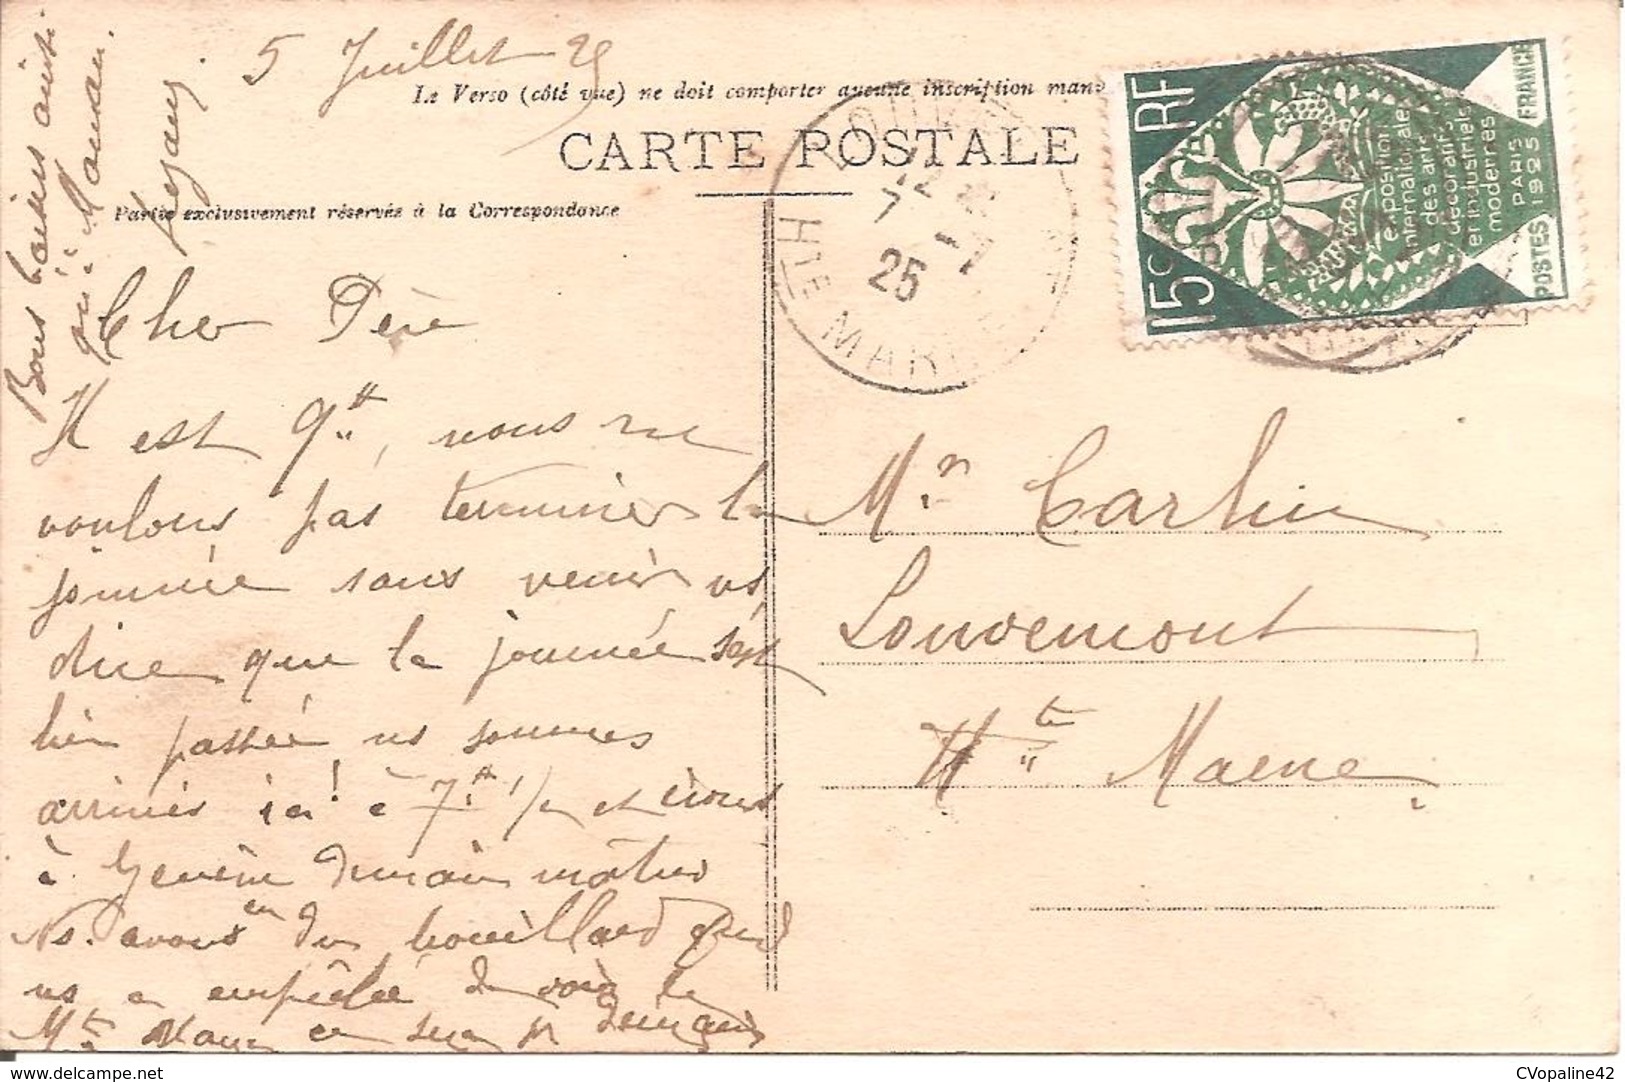 5 Juillet 25
Le Verso (côté vue) ne doit comporter aucune inscription manu
CARTE POSTALE
Partie exclusivement réservée à la Correspondance
Bons baisers ainsi
qu'à Maman.
Cher Père
Il est 9h, nous ne
voulons pas terminer la
journée sans venir vs
dire que la journée s'est
bien passée ns sommes
arrivés ici à 7h 1/2 et irons
à Genève demain matin
Ns avons eu du brouillard qui
ns a empêché de voir le
Mt Blanc ce sera pr demain
Mr Carlin
Louvemont
Hte Marne
7
25
Hte MARNE
RF
15c
exposition
internationale
des arts
décoratifs
et industriels
modernes
PARIS
1925
POSTES FRANCE
CVopaline42